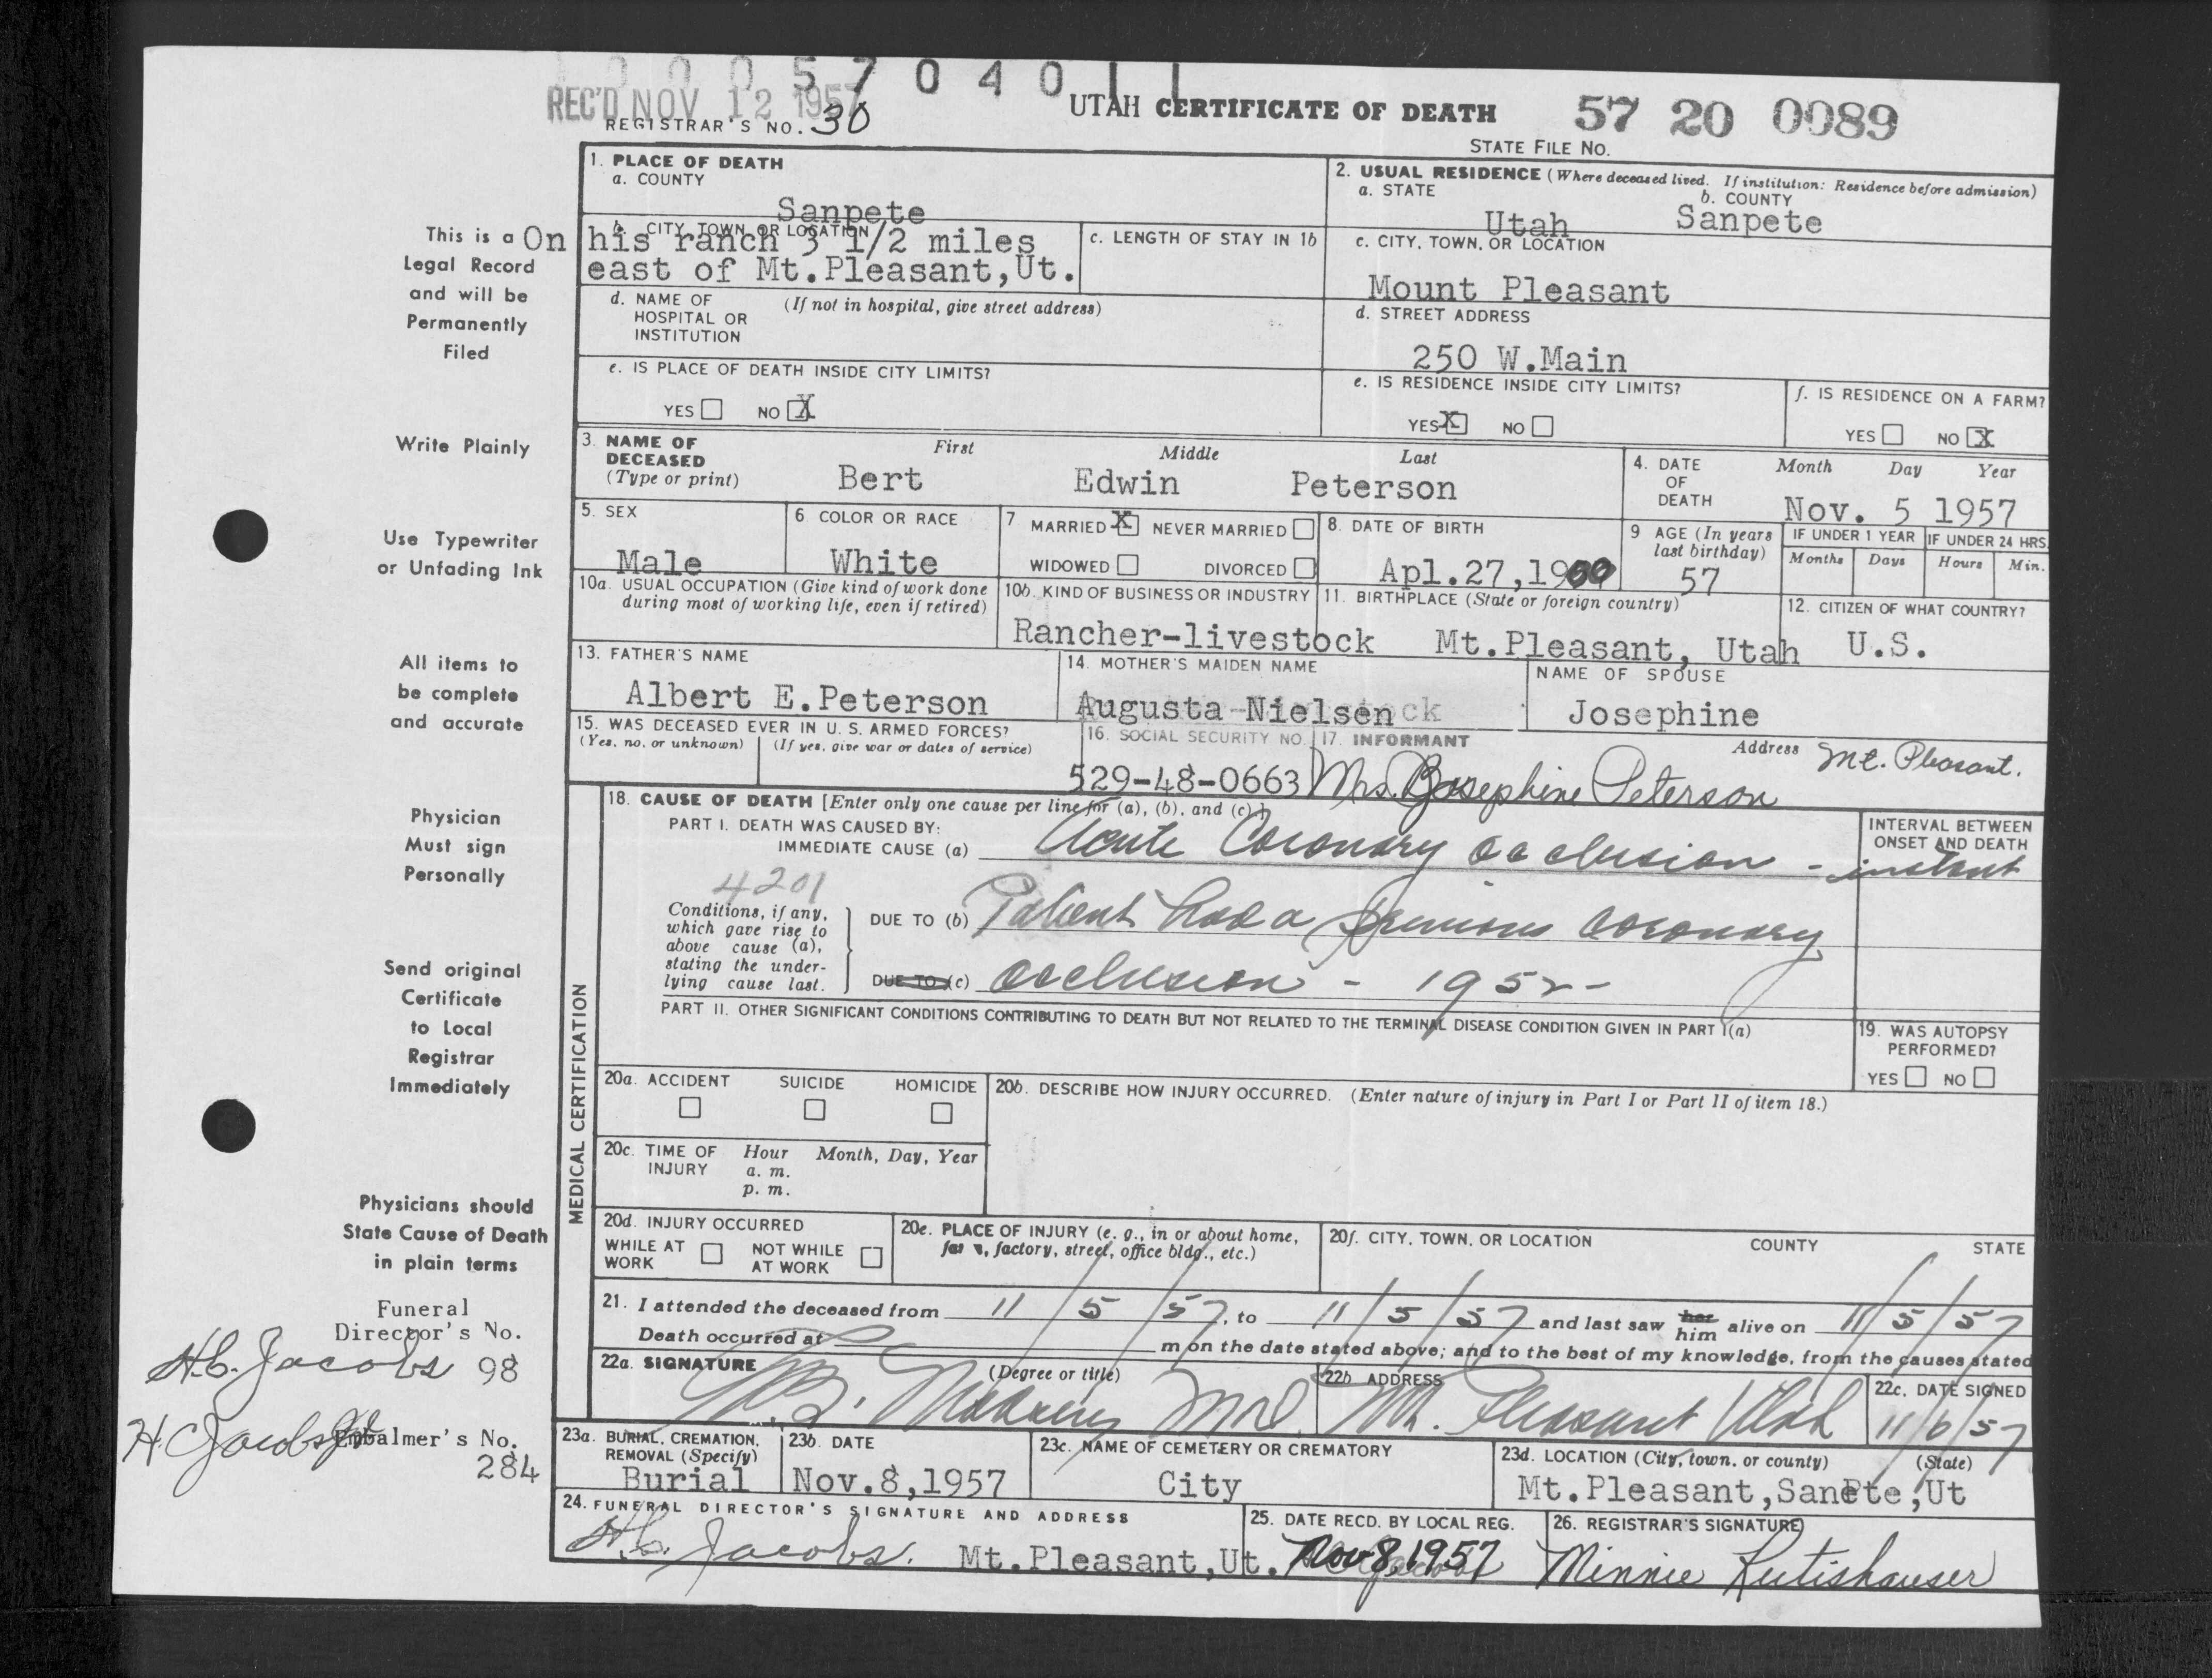 0 0 0 5 7 0 4 0 1 1
REC'D NOV 12 1957
REGISTRAR'S NO. 30
UTAH CERTIFICATE OF DEATH
57 20 0089
STATE FILE NO.
1. PLACE OF DEATH
a. COUNTY
Sanpete
b. CITY, TOWN, OR LOCATION
On his ranch 3 1/2 miles
east of Mt.Pleasant,Ut.
c. LENGTH OF STAY IN 1b
d. NAME OF (If not in hospital, give street address)
HOSPITAL OR
INSTITUTION
e. IS PLACE OF DEATH INSIDE CITY LIMITS?
YES NO X
2. USUAL RESIDENCE (Where deceased lived. If institution: Residence before admission)
a. STATE b. COUNTY
Utah Sanpete
c. CITY, TOWN, OR LOCATION
Mount Pleasant
d. STREET ADDRESS
250 W.Main
e. IS RESIDENCE INSIDE CITY LIMITS?
YES X NO
f. IS RESIDENCE ON A FARM?
YES NO X
3. NAME OF DECEASED (Type or print)
First Middle Last
Bert Edwin Peterson
4. DATE OF DEATH
Month Day Year
Nov. 5 1957
5. SEX
Male
6 COLOR OR RACE
White
7 MARRIED X NEVER MARRIED
WIDOWED DIVORCED
8. DATE OF BIRTH
Apl.27,1900
9 AGE (In years last birthday)
57
IF UNDER 1 YEAR IF UNDER 24 HRS.
Months Days Hours Min.
10a. USUAL OCCUPATION (Give kind of work done
during most of working life, even if retired)
10b. KIND OF BUSINESS OR INDUSTRY
Rancher-livestock
11. BIRTHPLACE (State or foreign country)
Mt.Pleasant, Utah
12. CITIZEN OF WHAT COUNTRY?
U.S.
13. FATHER'S NAME
Albert E.Peterson
14. MOTHER'S MAIDEN NAME
Augusta Nielsen
NAME OF SPOUSE
Josephine
15. WAS DECEASED EVER IN U. S. ARMED FORCES?
(Yes, no, or unknown) (If yes, give war or dates of service)
16. SOCIAL SECURITY NO.
529-48-0663
17. INFORMANT Address
Mrs. Josephine Peterson Mt. Pleasant.
MEDICAL CERTIFICATION
18. CAUSE OF DEATH [Enter only one cause per line for (a), (b), and (c).]
PART I. DEATH WAS CAUSED BY:
IMMEDIATE CAUSE (a) Acute Coronary occlusion - instant
INTERVAL BETWEEN
ONSET AND DEATH
4201
Conditions, if any,
which gave rise to
above cause (a),
stating the under-
lying cause last.
DUE TO (b) Patient had a previous coronary
DUE TO (c) occlusion - 1952 -
PART II. OTHER SIGNIFICANT CONDITIONS CONTRIBUTING TO DEATH BUT NOT RELATED TO THE TERMINAL DISEASE CONDITION GIVEN IN PART I(a)
19. WAS AUTOPSY
PERFORMED?
YES NO
20a. ACCIDENT SUICIDE HOMICIDE
20b. DESCRIBE HOW INJURY OCCURRED. (Enter nature of injury in Part I or Part II of item 18.)
20c. TIME OF INJURY
Hour Month, Day, Year
a. m.
p. m.
20d. INJURY OCCURRED
WHILE AT WORK NOT WHILE AT WORK
20e. PLACE OF INJURY (e. g., in or about home,
farm, factory, street, office bldg., etc.)
20f. CITY, TOWN, OR LOCATION COUNTY STATE
21. I attended the deceased from 11/5/57, to 11/5/57 and last saw her him alive on 11/5/57
Death occurred at m on the date stated above; and to the best of my knowledge, from the causes stated
22a. SIGNATURE (Degree or title)
M.D.
22b ADDRESS
Mt. Pleasant Utah
22c. DATE SIGNED
11/6/57
23a. BURIAL, CREMATION,
REMOVAL (Specify)
Burial
23b. DATE
Nov.8,1957
23c. NAME OF CEMETERY OR CREMATORY
City
23d. LOCATION (City, town, or county) (State)
Mt.Pleasant,SanPete,Ut
24. FUNERAL DIRECTOR'S SIGNATURE AND ADDRESS
H.C. Jacobs. Mt.Pleasant,Ut.
25. DATE RECD. BY LOCAL REG.
Nov 8, 1957
26. REGISTRAR'S SIGNATURE
Minnie Rutishauser
This is a
Legal Record
and will be
Permanently
Filed
Write Plainly
Use Typewriter
or Unfading Ink
All items to
be complete
and accurate
Physician
Must sign
Personally
Send original
Certificate
to Local
Registrar
Immediately
Physicians should
State Cause of Death
in plain terms
Funeral
Director's No.
H.C. Jacobs 98
H C Jacobs Jr
Embalmer's No.
284